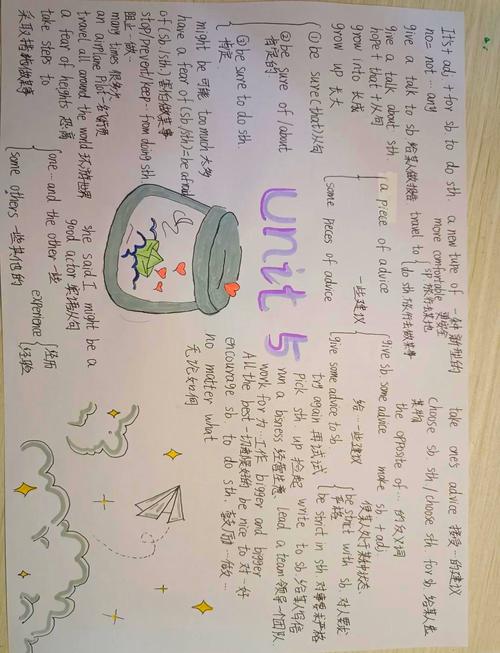 unit 5
It's + adj + for sb to do sth
no = not … any
give a talk to sb 给某人做报告
give a talk about sth
hope + that + 从句
grow into 长成
grow up 长大
a new type of 一种新型的
more comfortable 更舒适
travel to
sp 旅行去某地
do sth 旅行去做某事
a piece of advice
some pieces of advice
一些建议
give sb some advice
give some advice to sb
给…一些建议
take one's advice 接受…的建议
choose sb sth / choose sth for sb 给某人选
某物
the opposite of … 的反义词
make sb + adj
使某人处于某种状态
be strict with sb 对人要求
严格
be strict in sth 对事要求严格
① be sure (that) 从句
② be sure of / about
肯定的
③ be sure to do sth
肯定
might be 可能 too much 太多
have a fear of (sb/sth) = be afraid
of (sb/sth) 害怕做某事
stop/prevent/keep … from doing sth
阻止…做…
many times 很多次
an airplane Pilot 一名飞行员
travel all around the world 环游世界
a fear of heights 恐高
take steps to
采取措施做某事
one … and the other 一些
some others 一些其他的
she said I might be a
good actor 宾语从句
experience
经历
经验
try again 再试试
Pick sth up 捡起
write to sb 给某人写信
run a bsness 经营生意
Lead a team 领导一个团队
work for 为 工作
bigger and bigger
All the best 一切都很好的
be nice to 对…好
encourage sb to do sth. 鼓励…做…
no matter what
无论如何